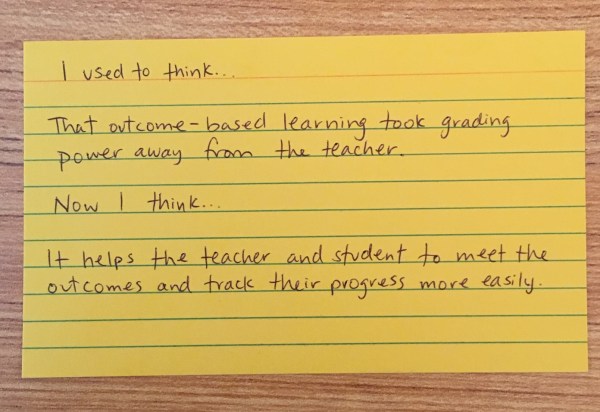 I used to think...
That outcome-based learning took grading
power away from the teacher.
Now I think...
It helps the teacher and student to meet the
outcomes and track their progress more easily.